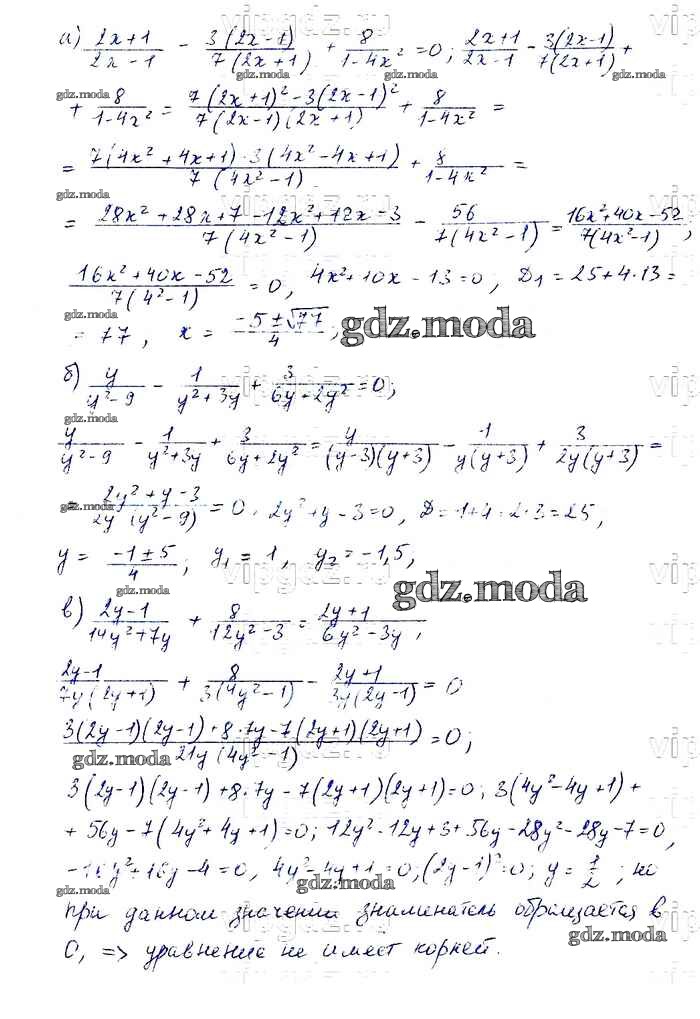 а) (2x+1)/(2x-1) - 3(2x-1)/7(2x+1) + 8/(1-4x²) = 0; (2x+1)/(2x-1) - 3(2x-1)/7(2x+1) +
+ 8/(1-4x²) = (7(2x+1)² - 3(2x-1)²)/(7(2x-1)(2x+1)) + 8/(1-4x²) =
= (7(4x² + 4x+1) · 3(4x² - 4x + 1))/(7(4x² - 1)) + 8/(1-4x²) =
= (28x² + 28x + 7 - 12x² + 12x - 3)/(7(4x² - 1)) - 56/(7(4x² - 1)) = (16x² + 40x - 52)/(7(4x² - 1));
(16x² + 40x - 52)/(7(4² - 1)) = 0, 4x² + 10x - 13 = 0, D₁ = 25 + 4·13 =
= 77, x = (-5 ± √77)/4;
gdz.moda
б) y/(y² - 9) - 1/(y² + 3y) + 3/(6y + 2y²) = 0;
y/(y² - 9) - 1/(y² + 3y) + 3/(6y + 2y²) = y/((y-3)(y+3)) - 1/(y(y+3)) + 3/(2y(y+3)) =
= (2y² + y - 3)/(2y (y² - 9)) = 0. 2y² + y - 3 = 0, D = 1 + 4 · 2 · 3 = 25,
y = (-1 ± 5)/4; y₁ = 1, y₂ = -1,5,
gdz.moda
в) (2y-1)/(14y² + 7y) + 8/(12y² - 3) = (2y+1)/(6y² - 3y);
(2y-1)/(7y(2y+1)) + 8/(3(4y² - 1)) - (2y+1)/(3y(2y-1)) = 0
(3(2y-1)(2y-1) + 8·7y - 7(2y+1)(2y+1))/(21y(4y² - 1)) = 0;
gdz.moda
3(2y-1)(2y-1) + 8·7y - 7(2y+1)(2y+1) = 0; 3(4y² - 4y + 1) +
+ 56y - 7(4y² + 4y + 1) = 0; 12y² - 12y + 3 + 56y - 28y² - 28y - 7 = 0,
-16y² + 16y - 4 = 0, 4y² - 4y + 1 = 0, (2y-1)² = 0; y = 1/2; но
gdz.moda
при данном значении знаменатель обращается в
0, => уравнение не имеет корней.
gdz.moda